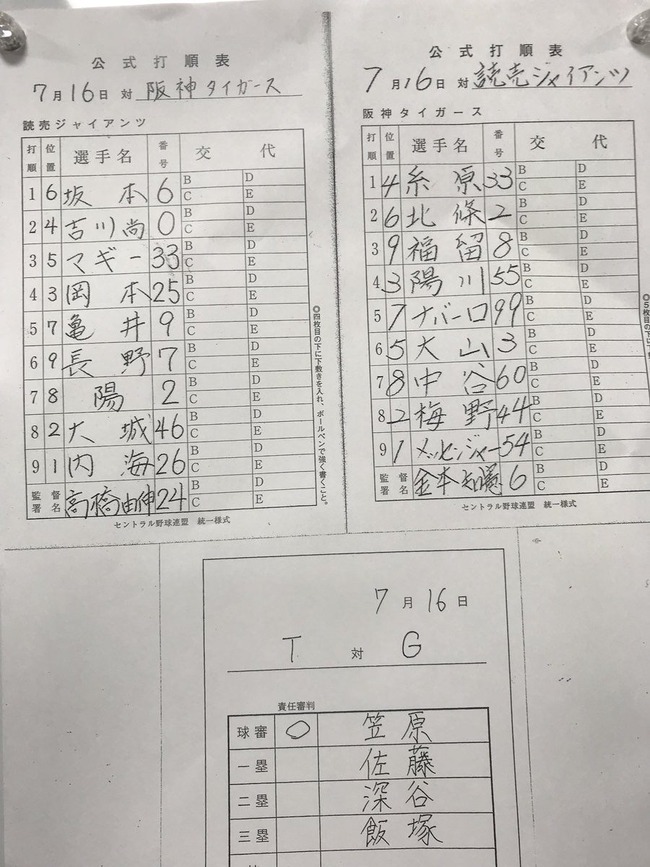 公式打順表
7月16日 対 阪神タイガース
読売ジャイアンツ
打順 位置 選手名 番号 交代
1 6 坂本 6 B D C E
2 4 吉川尚 0 B D C E
3 5 マギー 33 B D C E
4 3 岡本 25 B D C E
5 7 亀井 9 B D C E
6 9 長野 7 B D C E
7 8 陽 2 B D C E
8 2 大城 46 B D C E
9 1 内海 26 B D C E
監督署名 高橋由伸 24 B D C E
セントラル野球連盟 統一様式
◎四枚目の下に下敷きを入れ、ボールペンで強く書くこと。
公式打順表
7月16日 対 読売ジャイアンツ
阪神タイガース
打順 位置 選手名 番号 交代
1 4 糸原 33 B D C E
2 6 北條 2 B D C E
3 9 福留 8 B D C E
4 3 陽川 55 B D C E
5 7 ナバーロ 99 B D C E
6 5 大山 3 B D C E
7 8 中谷 60 B D C E
8 2 梅野 44 B D C E
9 1 メッセンジャー 54 B D C E
監督署名 金本知憲 6 B D C E
セントラル野球連盟 統一様式
7月16日
T 対 G
責任審判
球審 ○ 笠原
一塁 佐藤
二塁 深谷
三塁 飯塚